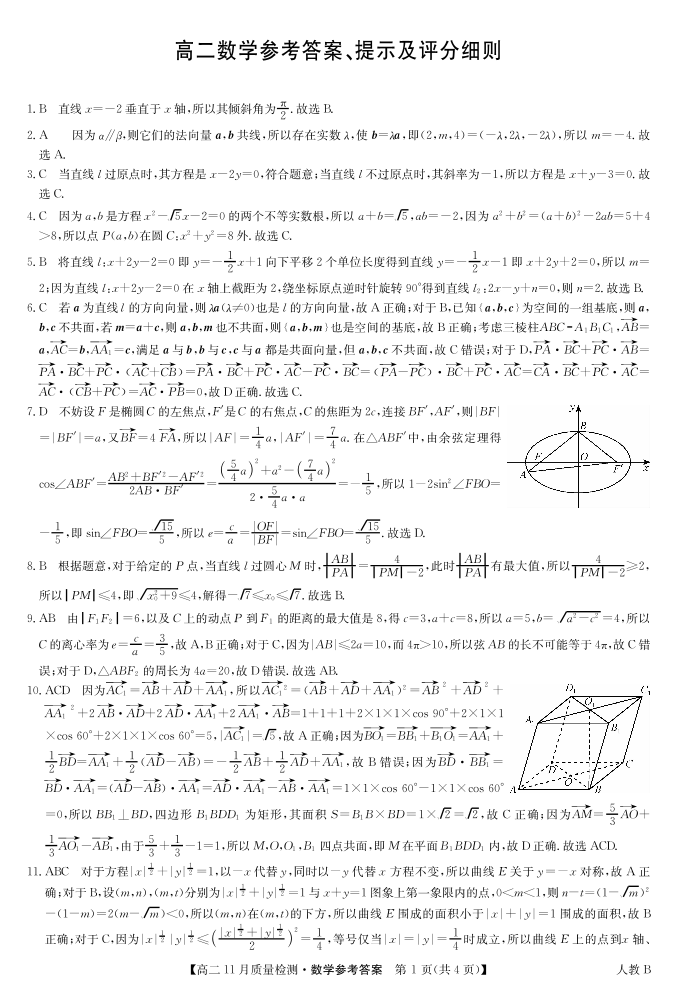 高二数学参考答案、提示及评分细则
1. B 直线 x=-2 垂直于 x 轴,所以其倾斜角为 π/2. 故选 B.
2. A 因为 α∥β,则它们的法向量 a,b 共线,所以存在实数 λ,使 b=λa,即(2,m,4)=(-λ,2λ,-2λ),所以 m=-4. 故
选 A.
3. C 当直线 l 过原点时,其方程是 x-2y=0,符合题意;当直线 l 不过原点时,其斜率为-1,所以方程是 x+y-3=0. 故
选 C.
4. C 因为 a,b 是方程 x²-√5x-2=0 的两个不等实数根,所以 a+b=√5,ab=-2,因为 a²+b²=(a+b)²-2ab=5+4
>8,所以点 P(a,b)在圆 C:x²+y²=8 外. 故选 C.
5. B 将直线 l:x+2y-2=0 即 y=-1/2x+1 向下平移 2 个单位长度得到直线 y=-1/2x-1 即 x+2y+2=0,所以 m=
2;因为直线 l:x+2y-2=0 在 x 轴上截距为 2,绕坐标原点逆时针旋转 90°得到直线 l₂:2x-y+n=0,则 n=2. 故选 B.
6. C 若 a 为直线 l 的方向向量,则 λa(λ≠0)也是 l 的方向向量,故 A 正确;对于 B,已知{a,b,c}为空间的一组基底,则 a,
b,c 不共面,若 m=a+c,则 a,b,m 也不共面,则{a,b,m}也是空间的基底,故 B 正确;考虑三棱柱ABC-A₁B₁C₁,AB=
a,AC=b,AA₁=c,满足 a 与 b,b 与 c,c 与 a 都是共面向量,但 a,b,c 不共面,故 C 错误;对于 D,PA·BC+PC·AB=
PA·BC+PC·(AC+CB)=PA·BC+PC·AC-PC·BC=(PA-PC)·BC+PC·AC=CA·BC+PC·AC=
AC·(CB+PC)=AC·PB=0,故 D 正确. 故选 C.
7. D 不妨设 F 是椭圆 C 的左焦点,F′是 C 的右焦点,C 的焦距为 2c,连接 BF′,AF′,则|BF|
=|BF′|=a,又BF=4 FA,所以|AF|=1/4a,|AF′|=7/4a. 在△ABF′中,由余弦定理得
cos∠ABF′=(AB²+BF′²-AF′²)/(2AB·BF′)=((5/4a)²+a²-(7/4a)²)/(2·5/4a·a)=-1/5,所以 1-2sin²∠FBO=
-1/5,即 sin∠FBO=√15/5,所以 e=c/a=|OF|/|BF|=sin∠FBO=√15/5. 故选 D.
y
B
F
O
A
F′
x
8. B 根据题意,对于给定的 P 点,当直线 l 过圆心 M 时,|AB|/|PA|=4/(|PM|-2),此时|AB|/|PA|有最大值,所以4/(|PM|-2)≥2,
所以|PM|≤4,即√(x₀²+9)≤4,解得-√7≤x₀≤√7. 故选 B.
9. AB 由|F₁F₂|=6,以及 C 上的动点 P 到 F₁ 的距离的最大值是 8,得 c=3,a+c=8,所以 a=5,b=√(a²-c²)=4,所以
C 的离心率为 e=c/a=3/5,故 A,B 正确;对于 C,因为|AB|≤2a=10,而 4π>10,所以弦 AB 的长不可能等于 4π,故 C 错
误;对于 D,△ABF₂ 的周长为 4a=20,故 D 错误. 故选 AB.
10. ACD 因为AC₁=AB+AD+AA₁,所以AC₁²=(AB+AD+AA₁)²=AB²+AD²+
AA₁²+2AB·AD+2AD·AA₁+2AA₁·AB=1+1+1+2×1×1×cos 90°+2×1×1
×cos 60°+2×1×1×cos 60°=5,|AC₁|=√5,故 A 正确;因为BO₁=BB₁+B₁O₁=AA₁+
1/2BD=AA₁+1/2(AD-AB)=-1/2AB+1/2AD+AA₁,故 B 错误;因为BD·BB₁=
BD·AA₁=(AD-AB)·AA₁=AD·AA₁-AB·AA₁=1×1×cos 60°-1×1×cos 60°
=0,所以 BB₁⊥BD,四边形 B₁BDD₁ 为矩形,其面积 S=B₁B×BD=1×√2=√2,故 C 正确;因为AM=5/3AO+
1/3AO₁-AB₁,由于5/3+1/3-1=1,所以 M,O,O₁,B₁ 四点共面,即 M 在平面 B₁BDD₁ 内,故 D 正确. 故选 ACD.
D₁
C₁
O₁
A₁
B₁
D
C
O
A
B
11. ABC 对于方程|x|^(1/2)+|y|^(1/2)=1,以-x 代替 y,同时以-y 代替 x 方程不变,所以曲线 E 关于 y=-x 对称,故 A 正
确;对于 B,设(m,n),(m,t)分别为|x|^(1/2)+|y|^(1/2)=1 与 x+y=1 图象上第一象限内的点,0<m<1,则 n-t=(1-√m)²
-(1-m)=2(m-√m)<0,所以(m,n)在(m,t)的下方,所以曲线 E 围成的面积小于|x|+|y|=1 围成的面积,故 B
正确;对于 C,因为|x|^(1/2)|y|^(1/2)≤((|x|^(1/2)+|y|^(1/2))/2)²=1/4,等号仅当|x|=|y|=1/4时成立,所以曲线 E 上的点到 x 轴、
【高二 11 月质量检测·数学参考答案 第 1 页(共 4 页)】
人教 B